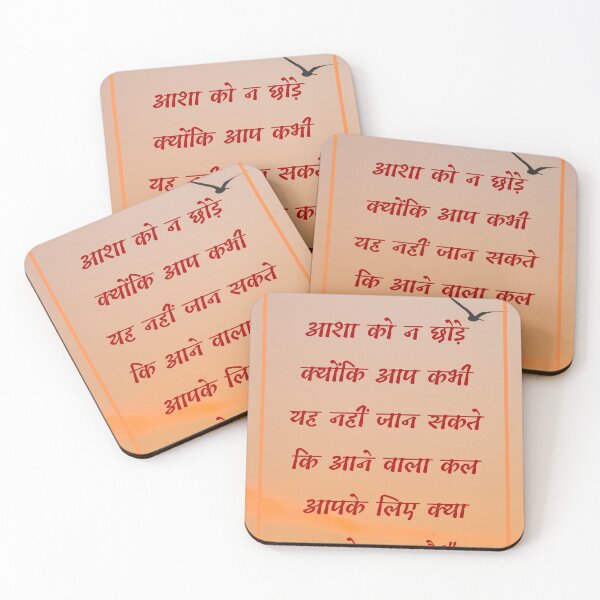 आशा को न छोड़े
क्योंकि आप कभी
यह
सकते
आशा को न छोड़े
क्योंकि आप कभी
यह नहीं जान सकते
कि आने वाला कल
आशा को न छोड़े
क्योंकि आप कभी
यह नहीं जान सकते
कि आने वाला
आपके
आशा को न छोड़े
क्योंकि आप कभी
यह नहीं जान सकते
कि आने वाला कल
आपके लिए क्या